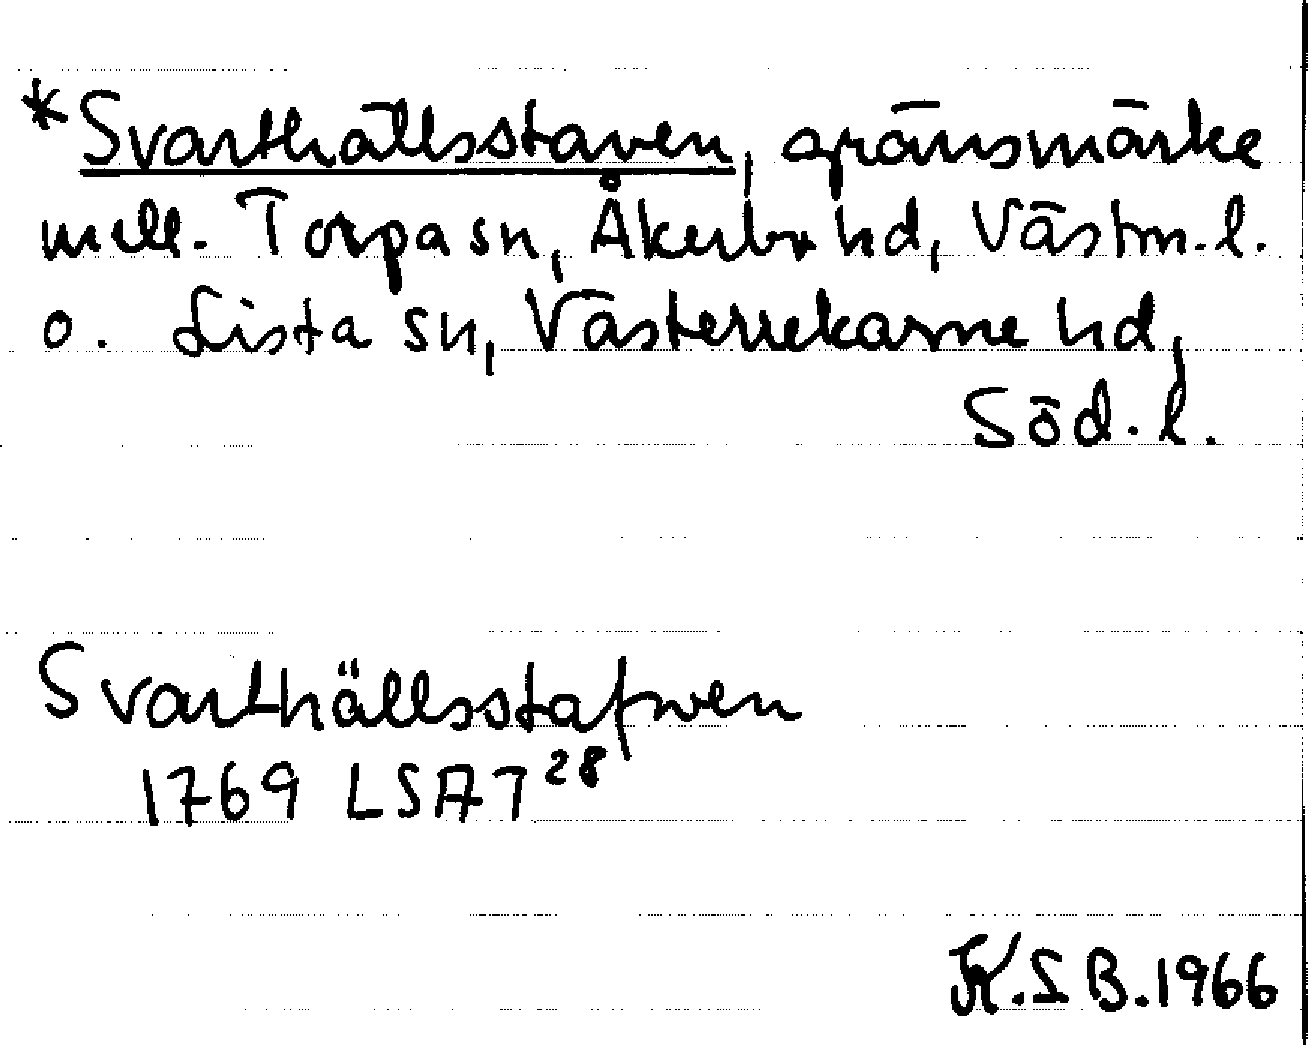 *Svarthällsstaven, gränsmärke
mell. Torpa sn, Åkerbo hd, Västm. l.
o. Lista sn, Västerrekarne hd,
Söd. l.
Svarthällsstafwen
1769 LSA T 28
K.S B. 1966